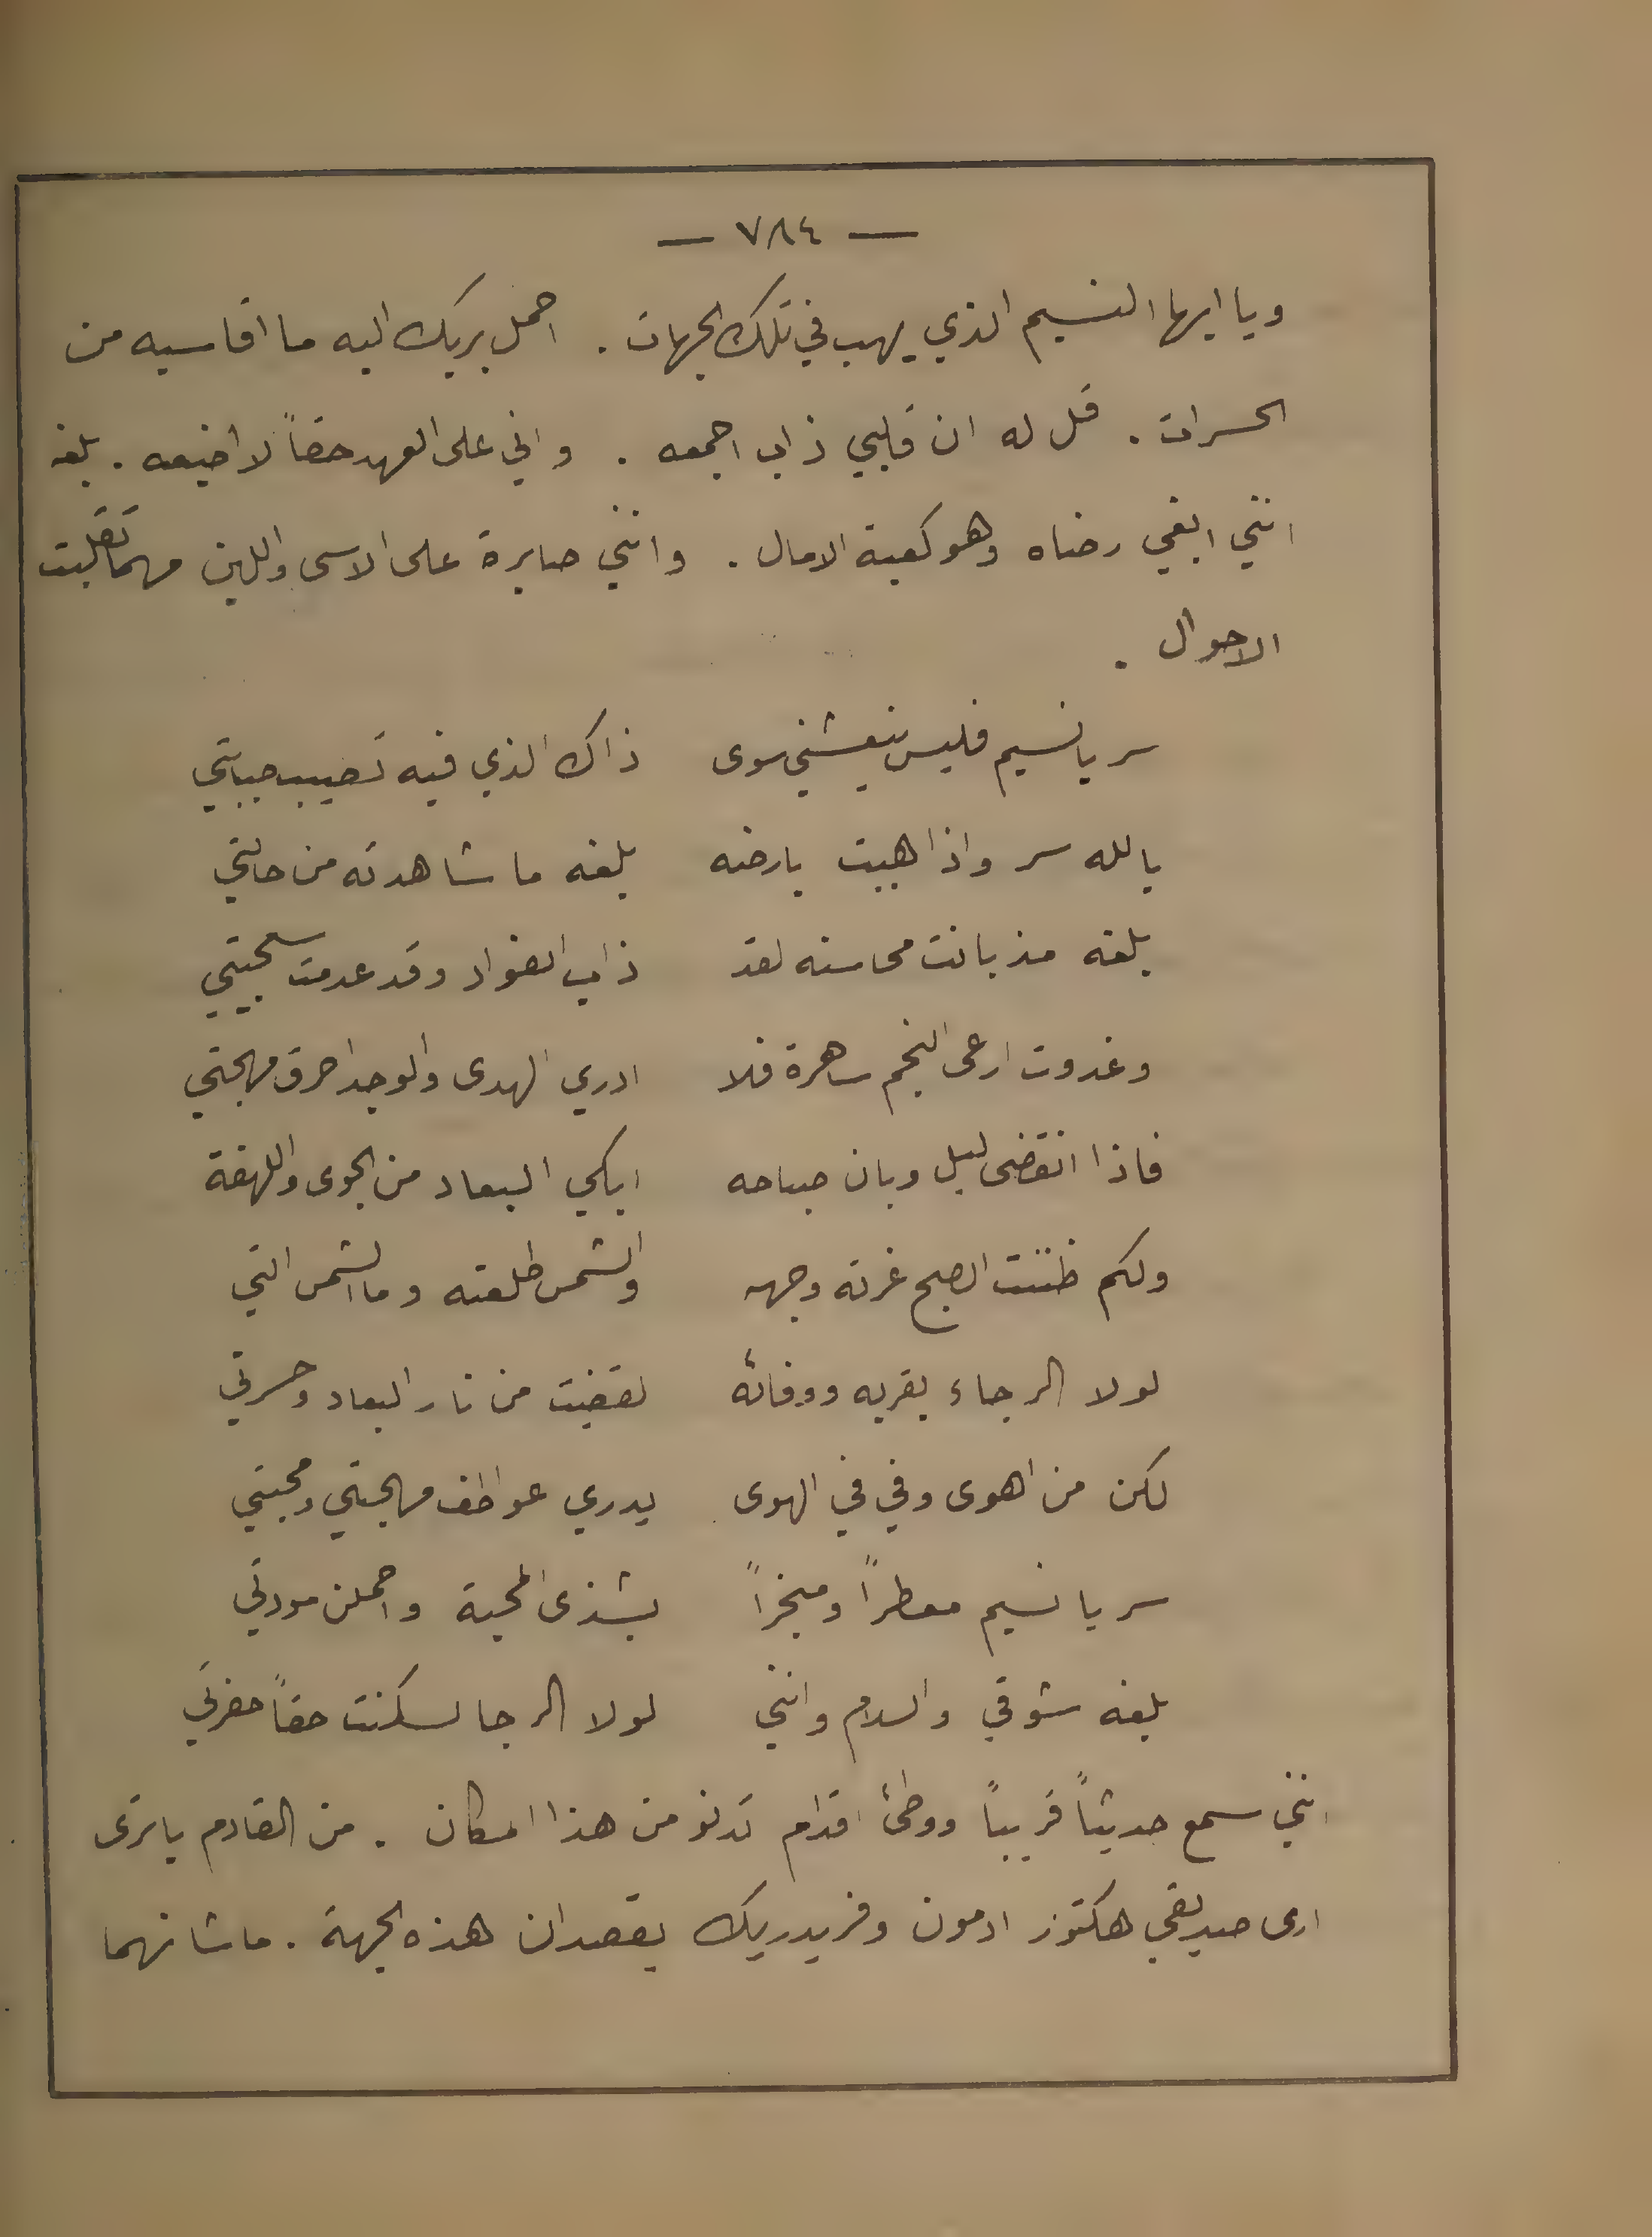 — ٧٨٤ —
ويا ايها النسيم الذي يهب في تلك الجهات . احمل بريك اليه ما اقاسيه من
الحسرات . قل له ان قلبي ذاب اجمعه . واني على العهد حقاً لا اضيعه . بلغه
انني ابغي رضاه وهو كعبة الامال . وانني صابرة على الاسى والبين مهما تقلبت
الاحوال .
سر يا نسيم فليس ينعشني سوى ذاك الذي فيه تصيب صبابتي
بالله سر واذا هببت بارضه بلغه ما شاهدته من حالتي
بلغه مذ بانت محاسنه لقد ذاب الفواد وقد عدمت سجيتي
وغدوت ارعى النجم ساهرة فلا ادري الهدى والوجد احرق مهجتي
فاذا انقضى ليل وبان صباحه ابكي البعاد من الجوى واللهفة
ولكم ظننت الصبح غرته وجهه والشمس طلعته وما الشمس التي
لولا الرجاء بقربه ووفائه لقضيت من نار البعاد وحسرتي
لكن من اهوى وفي في الهوى يدري عواطف مهجتي ومحبتي
سر يا نسيم معطراً ومبخراً بشذى المحبة واحملن مودتي
بلغه شوقي والسلام وانني لولا الرجا لسكنت حقاً حفرتي
انني سمع حديثاً قريباً ووطئ اقدام تدنو من هذا المكان . من القادم يا ترى
ارى صديقي هكتور ادمون وفريدريك يقصدان هذه الجهة . ما شانهما